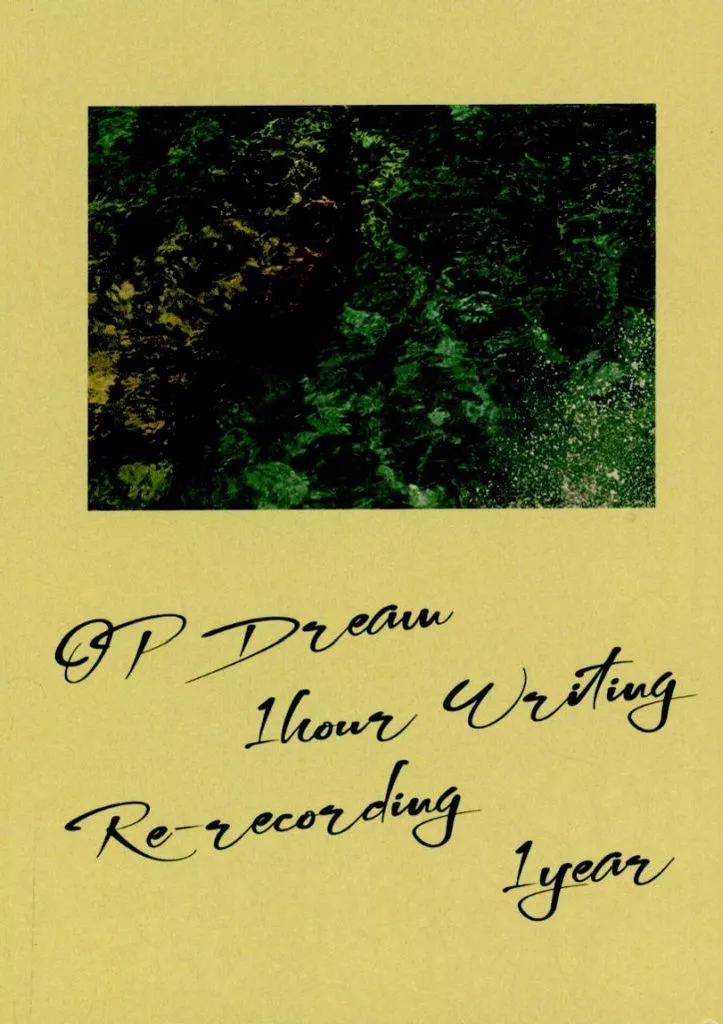 OP Dream
1hour Writing
Re-recording
1year